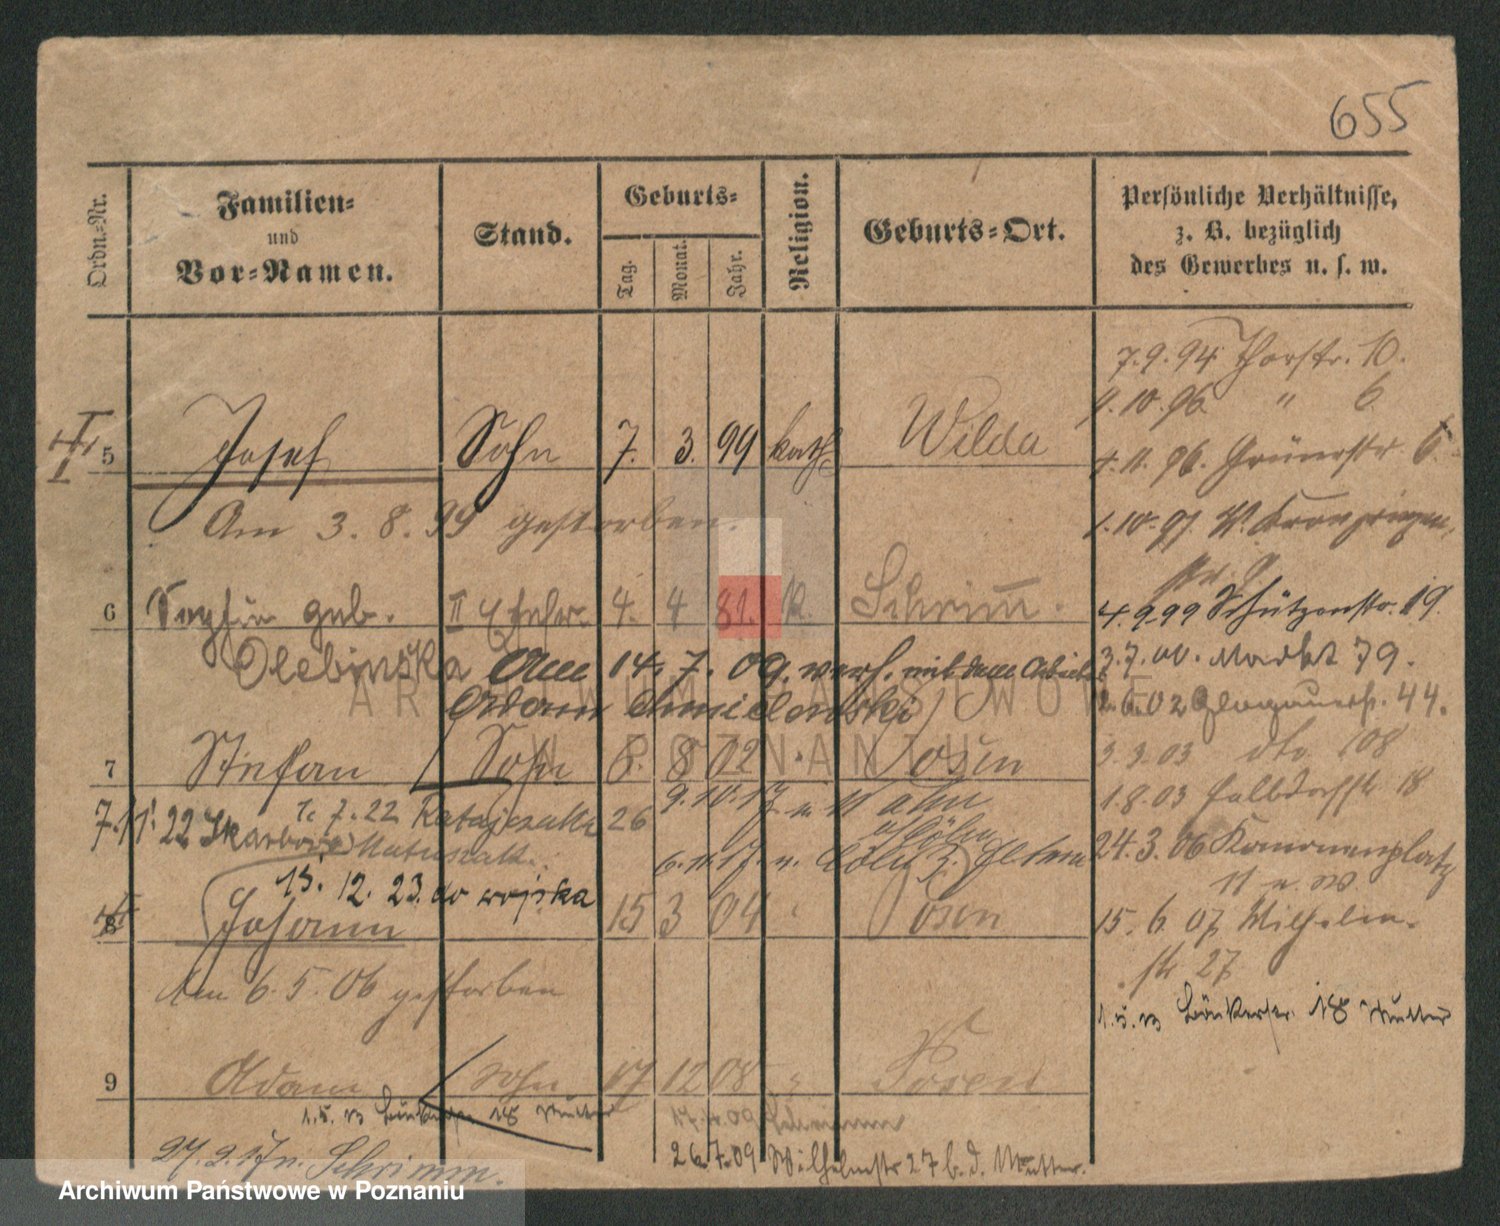 655
Ordn.-Nr.
Familien-
und
Vor-Namen.
Stand.
Geburts-
Tag.
Monat.
Jahr.
Religion.
Geburts-Ort.
Persönliche Verhältnisse,
z. B. bezüglich
des Gewerbes u. s. w.
7.9.94 Thorstr. 10.
1.10.96 " 6
5 Josef Sohn 7. 3. 99 kath. Wilda
4.11.96. Grünestr. 6.
Am 3.8.99 gestorben.
1.10.97 W. Kronprinzen
str.
6 Sophia geb. II Ehefr. 4. 4 81. K. Schrimm.
4.9.99 Schützenstr. 19.
Olebinska Am 14.7.09. verh. mit dem
3.7.00. Markt 79.
Adam Chmielewski
2.6.02 Glogauerstr. 44.
ARCHIWUM PAŃSTWOWE
W POZNANIU
7 Stefan Sohn 8. 8 02 Posen
3.3.03 dto 108
9.10.17. n.
1.8.03 Halbdorfstr 18
7.11.22 Skarbowa 1.7.22 Ratajczaka 26
6.11.17. n. Cöln
24.3.06 Kanonenplatz
11 n. W.
15.12.23. do wojska
8 Johann 15 3 04 " Posen
15.6.07 Wilhelm-
str 27
Am 6.5.06 gestorben
1.5. Bäckerstr. 18 Mutter
9 Adam Sohn 17 12 08 " Posen
1.5. 18 Mutter
17. .09 Schrimm
27.9.17 n. Schrimm.
26.7.09 Wilhelmstr 27 b. d. Mutter.
Archiwum Państwowe w Poznaniu